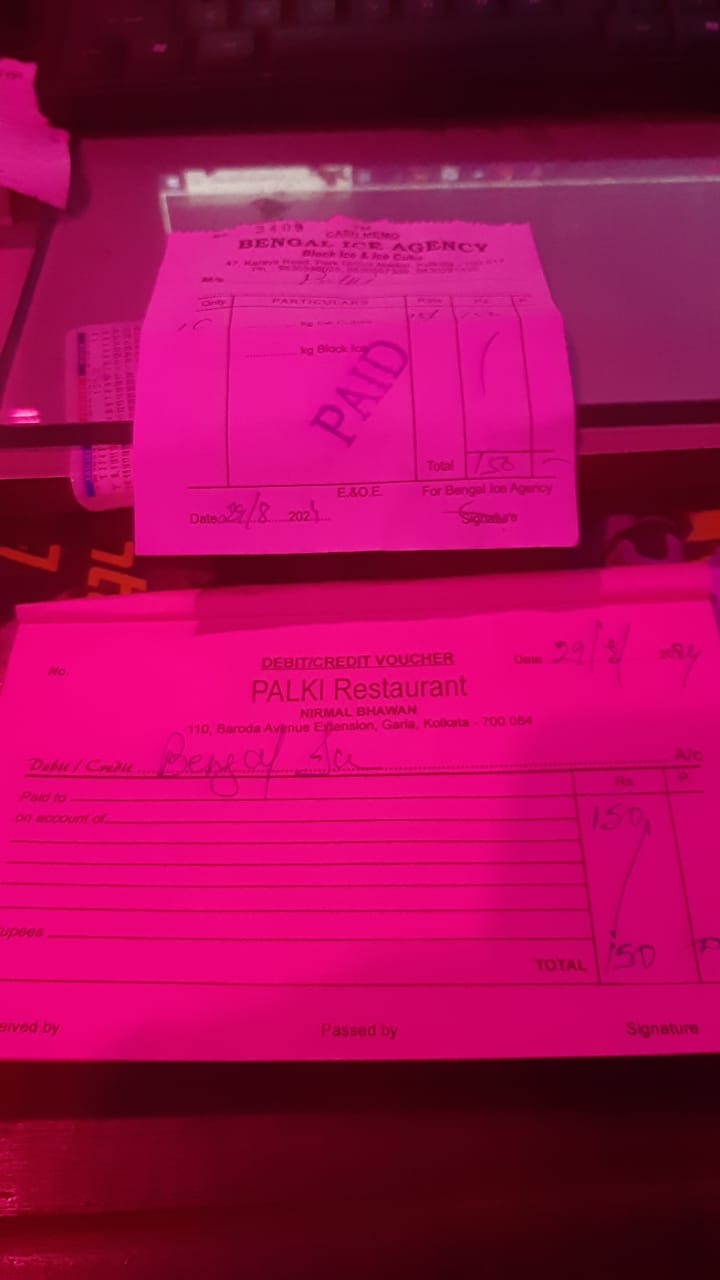 3409
CASH MEMO
BENGAL ICE AGENCY
Block Ice & Ice Cube
47, Karaya Road, Park Kolkata
Ph :
M/s
Qnty. PARTICULARS Rate Rs. P.
10 kg Ice
kg Block Ice
PAID
Total 150 -
E.&O.E. For Bengal Ice Agency
Date 29/8 202 Signature
DEBIT/CREDIT VOUCHER
No. Date 29/8/2024
PALKI Restaurant
NIRMAL BHAWAN
110, Baroda Avenue Extension, Garia, Kolkata - 700 084
Debit / Credit Bengal A/c
Rs. P.
Paid to
on account of 150
upees
TOTAL 150
eived by Passed by Signature